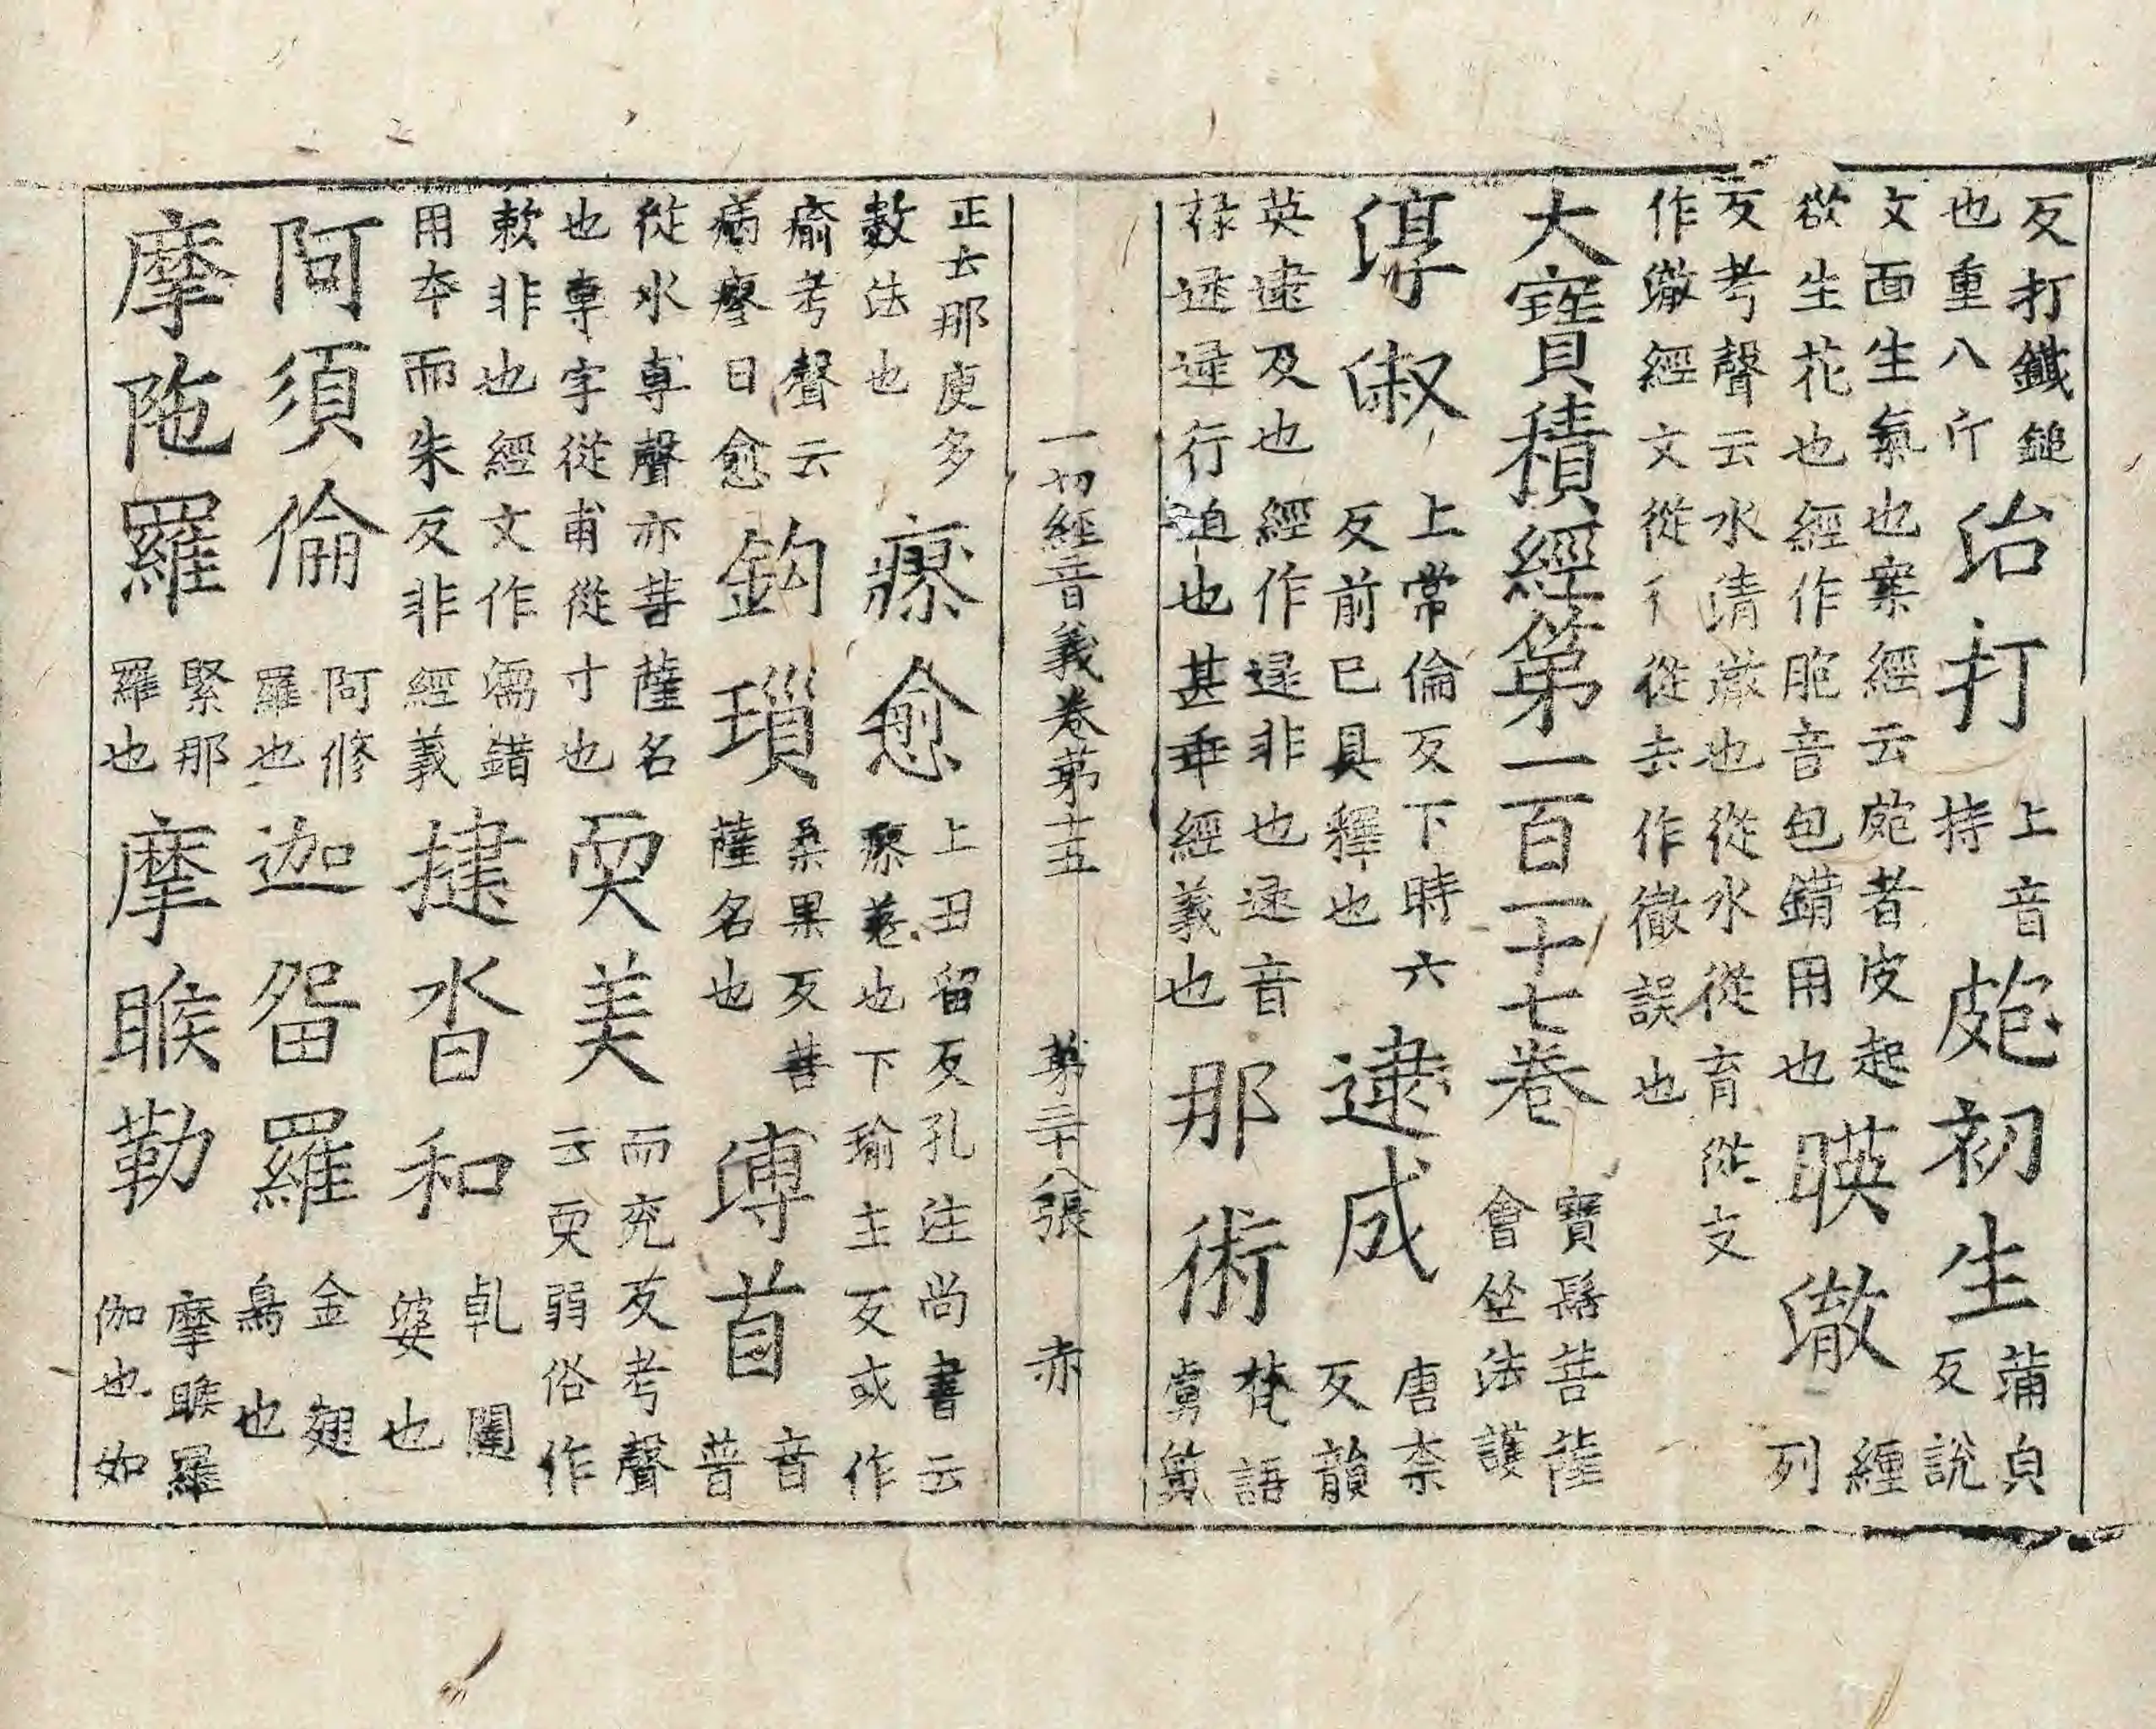 反打鐵鎚
也重八斤
治打
上音
持
皰初生
蒲皃
反說
文面生氣也案經云皰者皮起
欲生花也經作胞音包錯用也
暎澈
經
列
反考聲云水清澈也從水從育從攴
作澈經文從彳從去作徹誤也
大寶積經第一百一十七卷
寶髻菩薩
會竺法護
淳淑
上常倫反下時六
反前已具釋也
逮成
唐柰
反韻
英逮及也經作逯非也逯音
椂逯逯行迫也甚乖經義也
那術
梵語
虜筭
一切經音義卷第十五 第二十八張 赤
正云那庾多
數法也
瘳愈
上丑留反孔注尚書云
瘳差也下瑜主反或作
瘉考聲云
病瘳曰愈
鉤瑣
桑果反菩
薩名也
溥首
音
普
從水尃聲亦菩薩名
也尃字從甫從寸也
耎美
而兗反考聲
云耎弱俗作
軟非也經文作濡錯
用夲而朱反非經義
揵沓和
乹闥
婆也
阿須倫
阿修
羅也
迦畱羅
金翅
鳥也
摩陁羅
緊那
羅也
摩睺勒
摩睺羅
伽也如